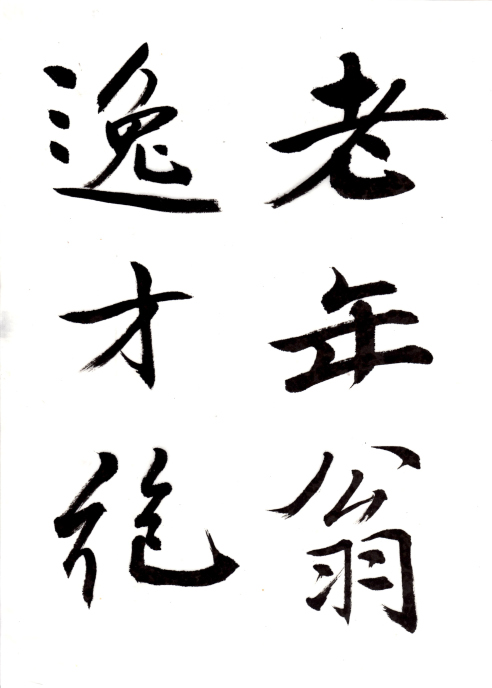 老年翁
逸才絶